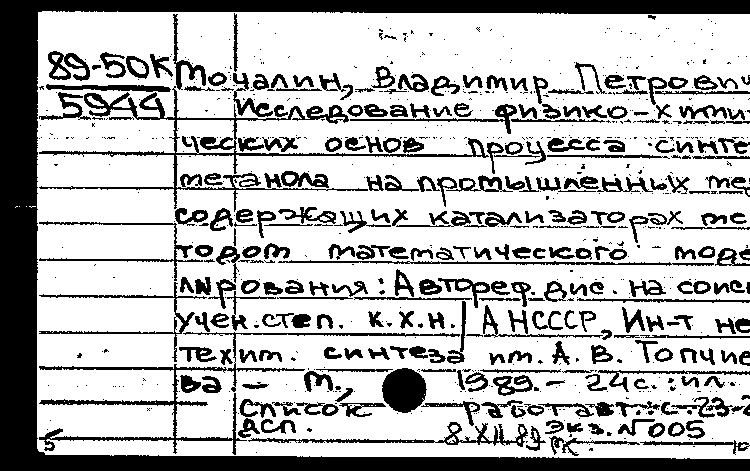 89-50К Мочалин, Владимир Петрович
5944 Исследование физико-хими
ческих основ процесса синте
метанола на промышленных ме
содержащих катализаторах ме
тодом математического моде
лирования: Автореф. дис. на соиск
учен. степ. к.х.н. / АН СССР, Ин-т не
техим. синтеза им. А. В. Топчие
ва. - М., 1989. - 24 с. : ил.
Список работ авт.: с. 23-2
ДСП. Экз. № 005
8.XII.89
5